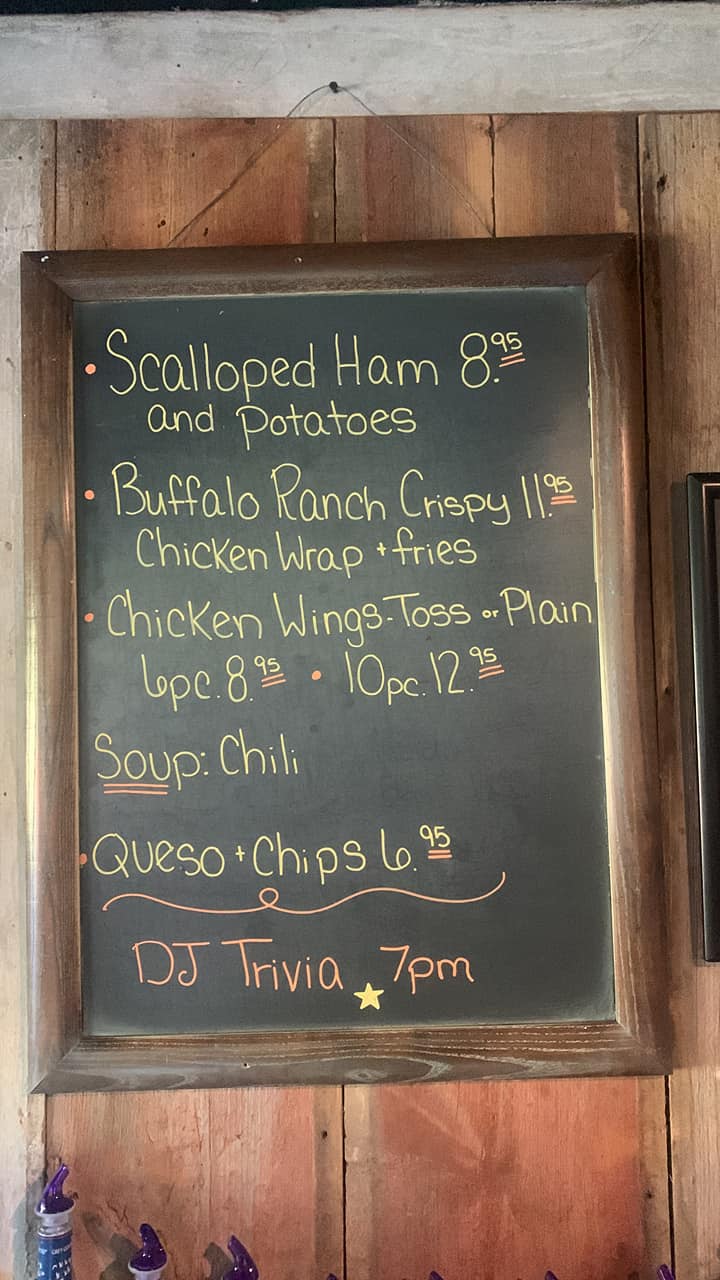 • Scalloped Ham 8.95
and potatoes
• Buffalo Ranch Crispy 11.95
Chicken Wrap + fries
• Chicken Wings-Toss or Plain
6pc. 8.95 • 10pc. 12.95
Soup: Chili
• Queso + Chips 6.95
DJ Trivia 7pm